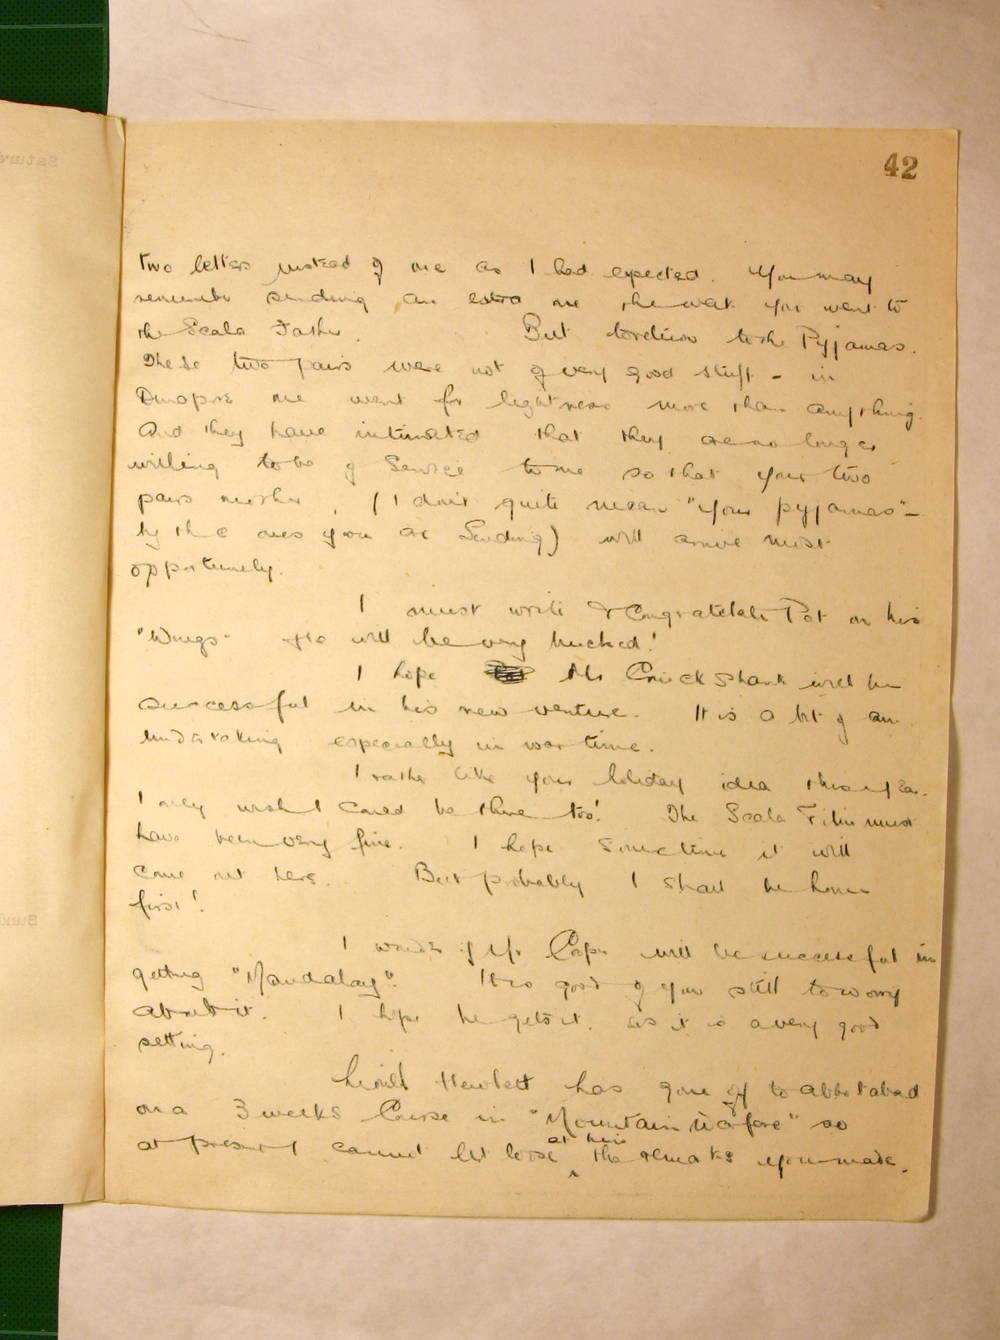 42
two letters instead of one as I had expected. You may
remember sending an extra one the week you went to
the Scala Father. But to return to the Pyjamas.
These two pairs were not of very good stuff - in
Dinapore one went for lightness more than anything.
And they have intimated that they are no longer
willing to be of Service to me so that your two
pairs mother, (I don't quite mean "your pyjamas" -
by the ones you are Sending) will arrive most
opportunely.
I must write & Congratulate Pat on his
"Wings". He will be very bucked!
I hope Mr Cruickshank will be
successful in his new venture. It is a bit of an
undertaking especially in war time.
I rather like your holiday idea this year.
I only wish I could be there too! The Scala Film must
have been very fine. I hope sometime it will
come out here. But probably I shall be home
first!
I wonder if Mr will be successful in
getting "Mandalay". It is good of you still to worry
about it. I hope he gets it. as it is a very good
setting.
Hewlett has gone off to Abbotabad
on a 3 weeks Course in "Mountain Warfare" so
at present I cannot let loose at him the remarks you made.
Satur
Sun